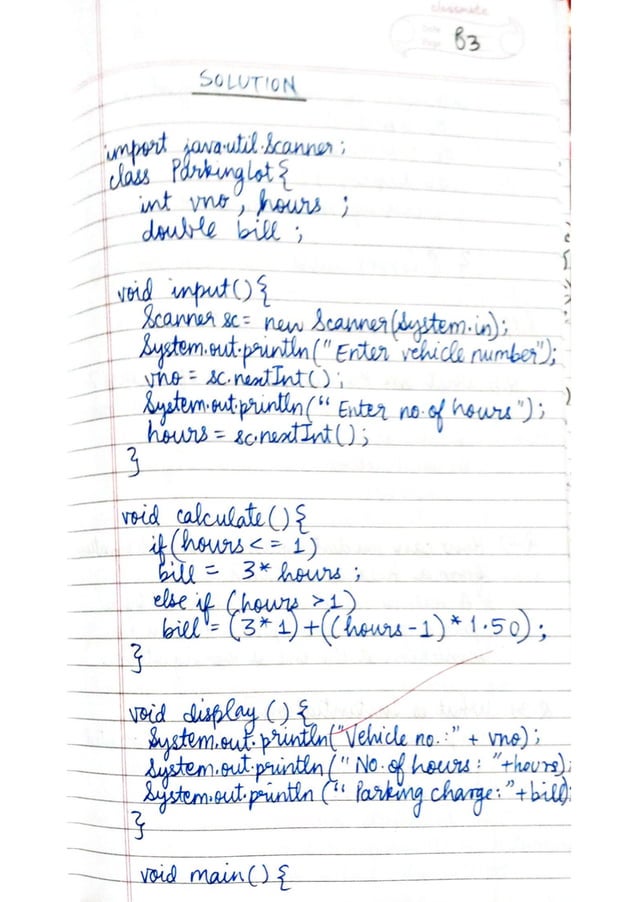 classmate
Date
Page B3
SOLUTION
import java.util.Scanner;
class ParkingLot{
int vno, hours ;
double bill ;
void input(){
Scanner sc= new Scanner(System.in);
System.out.println("Enter vehicle number");
vno = sc.nextInt();
System.out.println("Enter no. of hours");
hours = sc.nextInt();
}
void calculate(){
if(hours<= 1)
bill = 3* hours ;
else if (hours >1)
bill = (3*1)+((hours-1)*1.50);
}
void display(){
System.out.println("Vehicle no.:" + vno);
System.out.println("No. of hours: "+hours);
System.out.println("Parking charge:"+bill)
}
void main(){